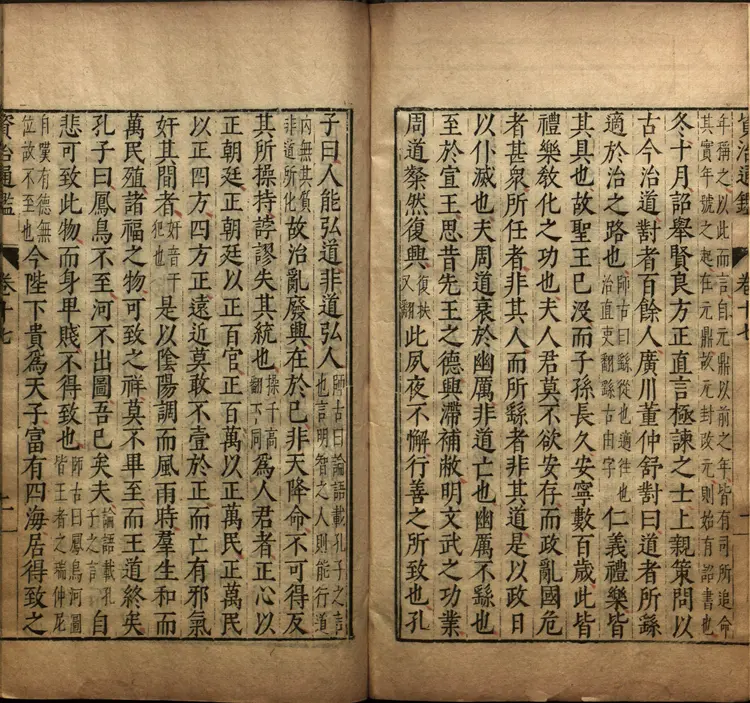 資治通鑑 卷十七
年稱之以此而言自元鼎以前之年皆有司所追命其實年號之起在元鼎故元封改元則始有詔書也
冬十月詔舉賢良方正直言極諫之士上親策問以
古今治道對者百餘人廣川董仲舒對曰道者所繇
適於治之路也師古曰繇從也適往也治直吏翻繇古由字仁義禮樂皆
其具也故聖王已沒而子孫長久安寧數百歲此皆
禮樂敎化之功也夫人君莫不欲安存而政亂國危
者甚衆所任者非其人而所繇者非其道是以政日
以仆滅也夫周道衰於幽厲非道亡也幽厲不繇也
至於宣王思昔先王之德興滯補敝明文武之功業
周道粲然復興復扶又翻此夙夜不懈行善之所致也孔
子曰人能弘道非道弘人師古曰論語載孔子之言也言明智之人則能行道
內無其質非道所化故治亂廢興在於己非天降命不可得反
其所操持誖謬失其統也操千高翻下同爲人君者正心以
正朝廷正朝廷以正百官正百萬以正萬民正萬民
以正四方四方正遠近莫敢不壹於正而亡有邪氣
奸其間者奸音干犯也是以陰陽調而風雨時羣生和而
萬民殖諸福之物可致之祥莫不畢至而王道終矣
孔子曰鳳鳥不至河不出圖吾已矣夫論語載孔子之言自
悲可致此物而身卑賤不得致也師古曰鳳鳥河圖皆王者之瑞仲尼
自嘆有德無位故不至也今陛下貴爲天子富有四海居得致之
資治通鑑 卷十七